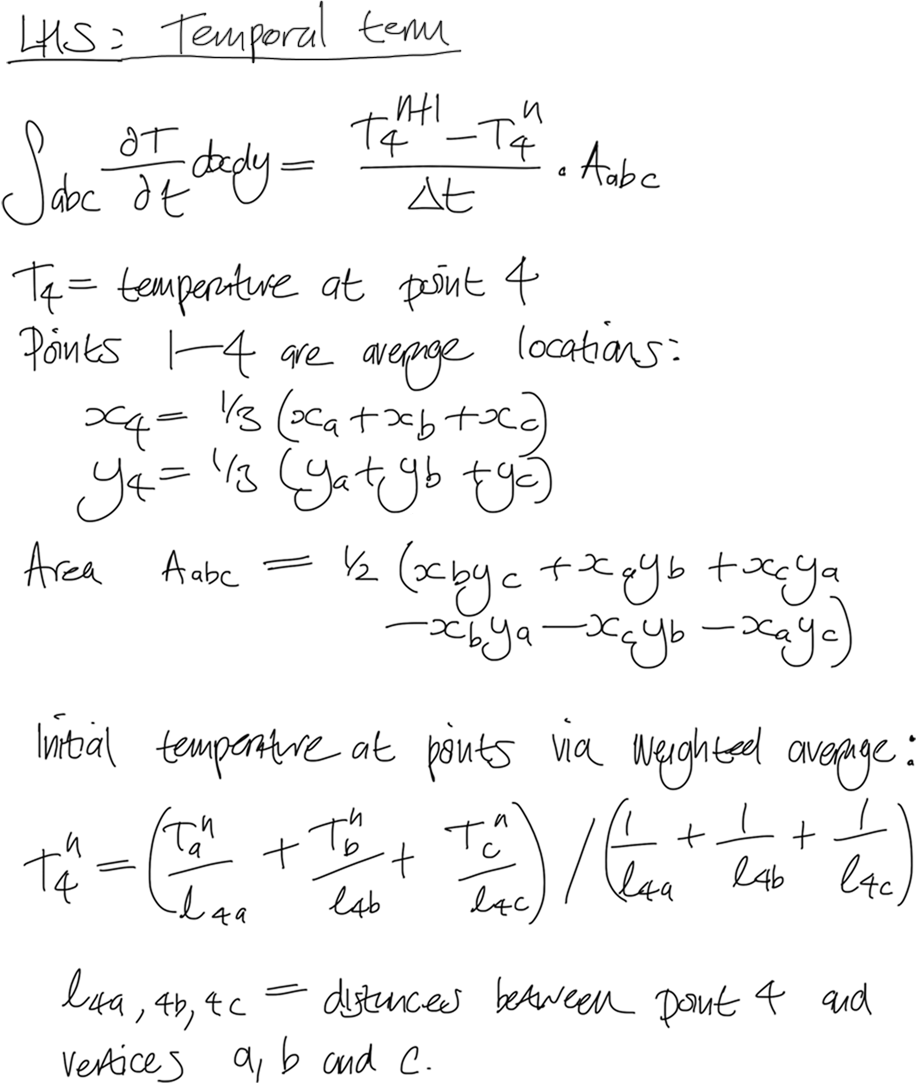 LHS: Temporal term
∫abc ∂T/∂t dxdy = (T₄ⁿ⁺¹ − T₄ⁿ)/Δt · Aabc
T₄ = temperature at point 4
Points 1–4 are average locations:
x₄ = 1/3 (xa + xb + xc)
y₄ = 1/3 (ya + yb + yc)
Area Aabc = 1/2 (xbyc + xayb + xcya
− xbya − xcyb − xayc)
Initial temperature at points via weighted average:
T₄ⁿ = (Taⁿ/l4a + Tbⁿ/l4b + Tcⁿ/l4c) / (1/l4a + 1/l4b + 1/l4c)
l4a, 4b, 4c = distances between point 4 and
vertices a, b and c.